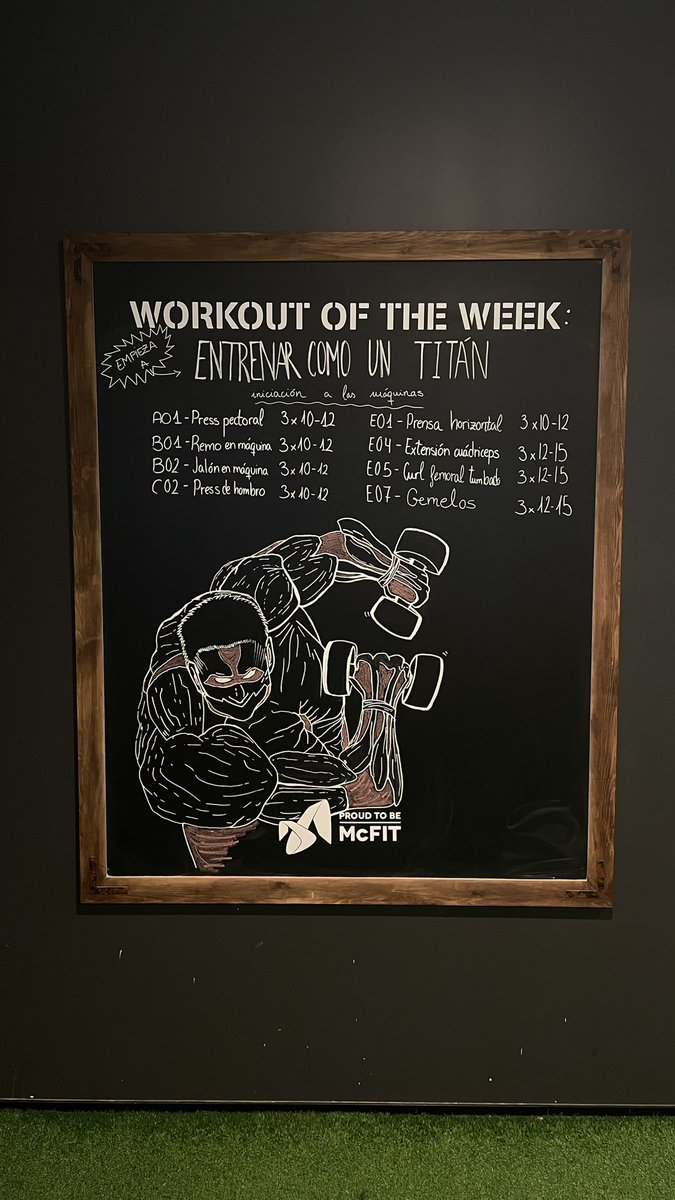 WORKOUT OF THE WEEK:
EMPIEZA
A
ENTRENAR COMO UN TITÁN
iniciación a las máquinas
A01 - Press pectoral 3x10-12
B01 - Remo en máquina 3x10-12
B02 - Jalón en máquina 3x10-12
C02 - Press de hombro 3x10-12
E01 - Prensa horizontal 3x10-12
E04 - Extensión cuádriceps 3x12-15
E05 - Curl femoral tumbado 3x12-15
E07 - Gemelos 3x12-15
PROUD TO BE
McFIT